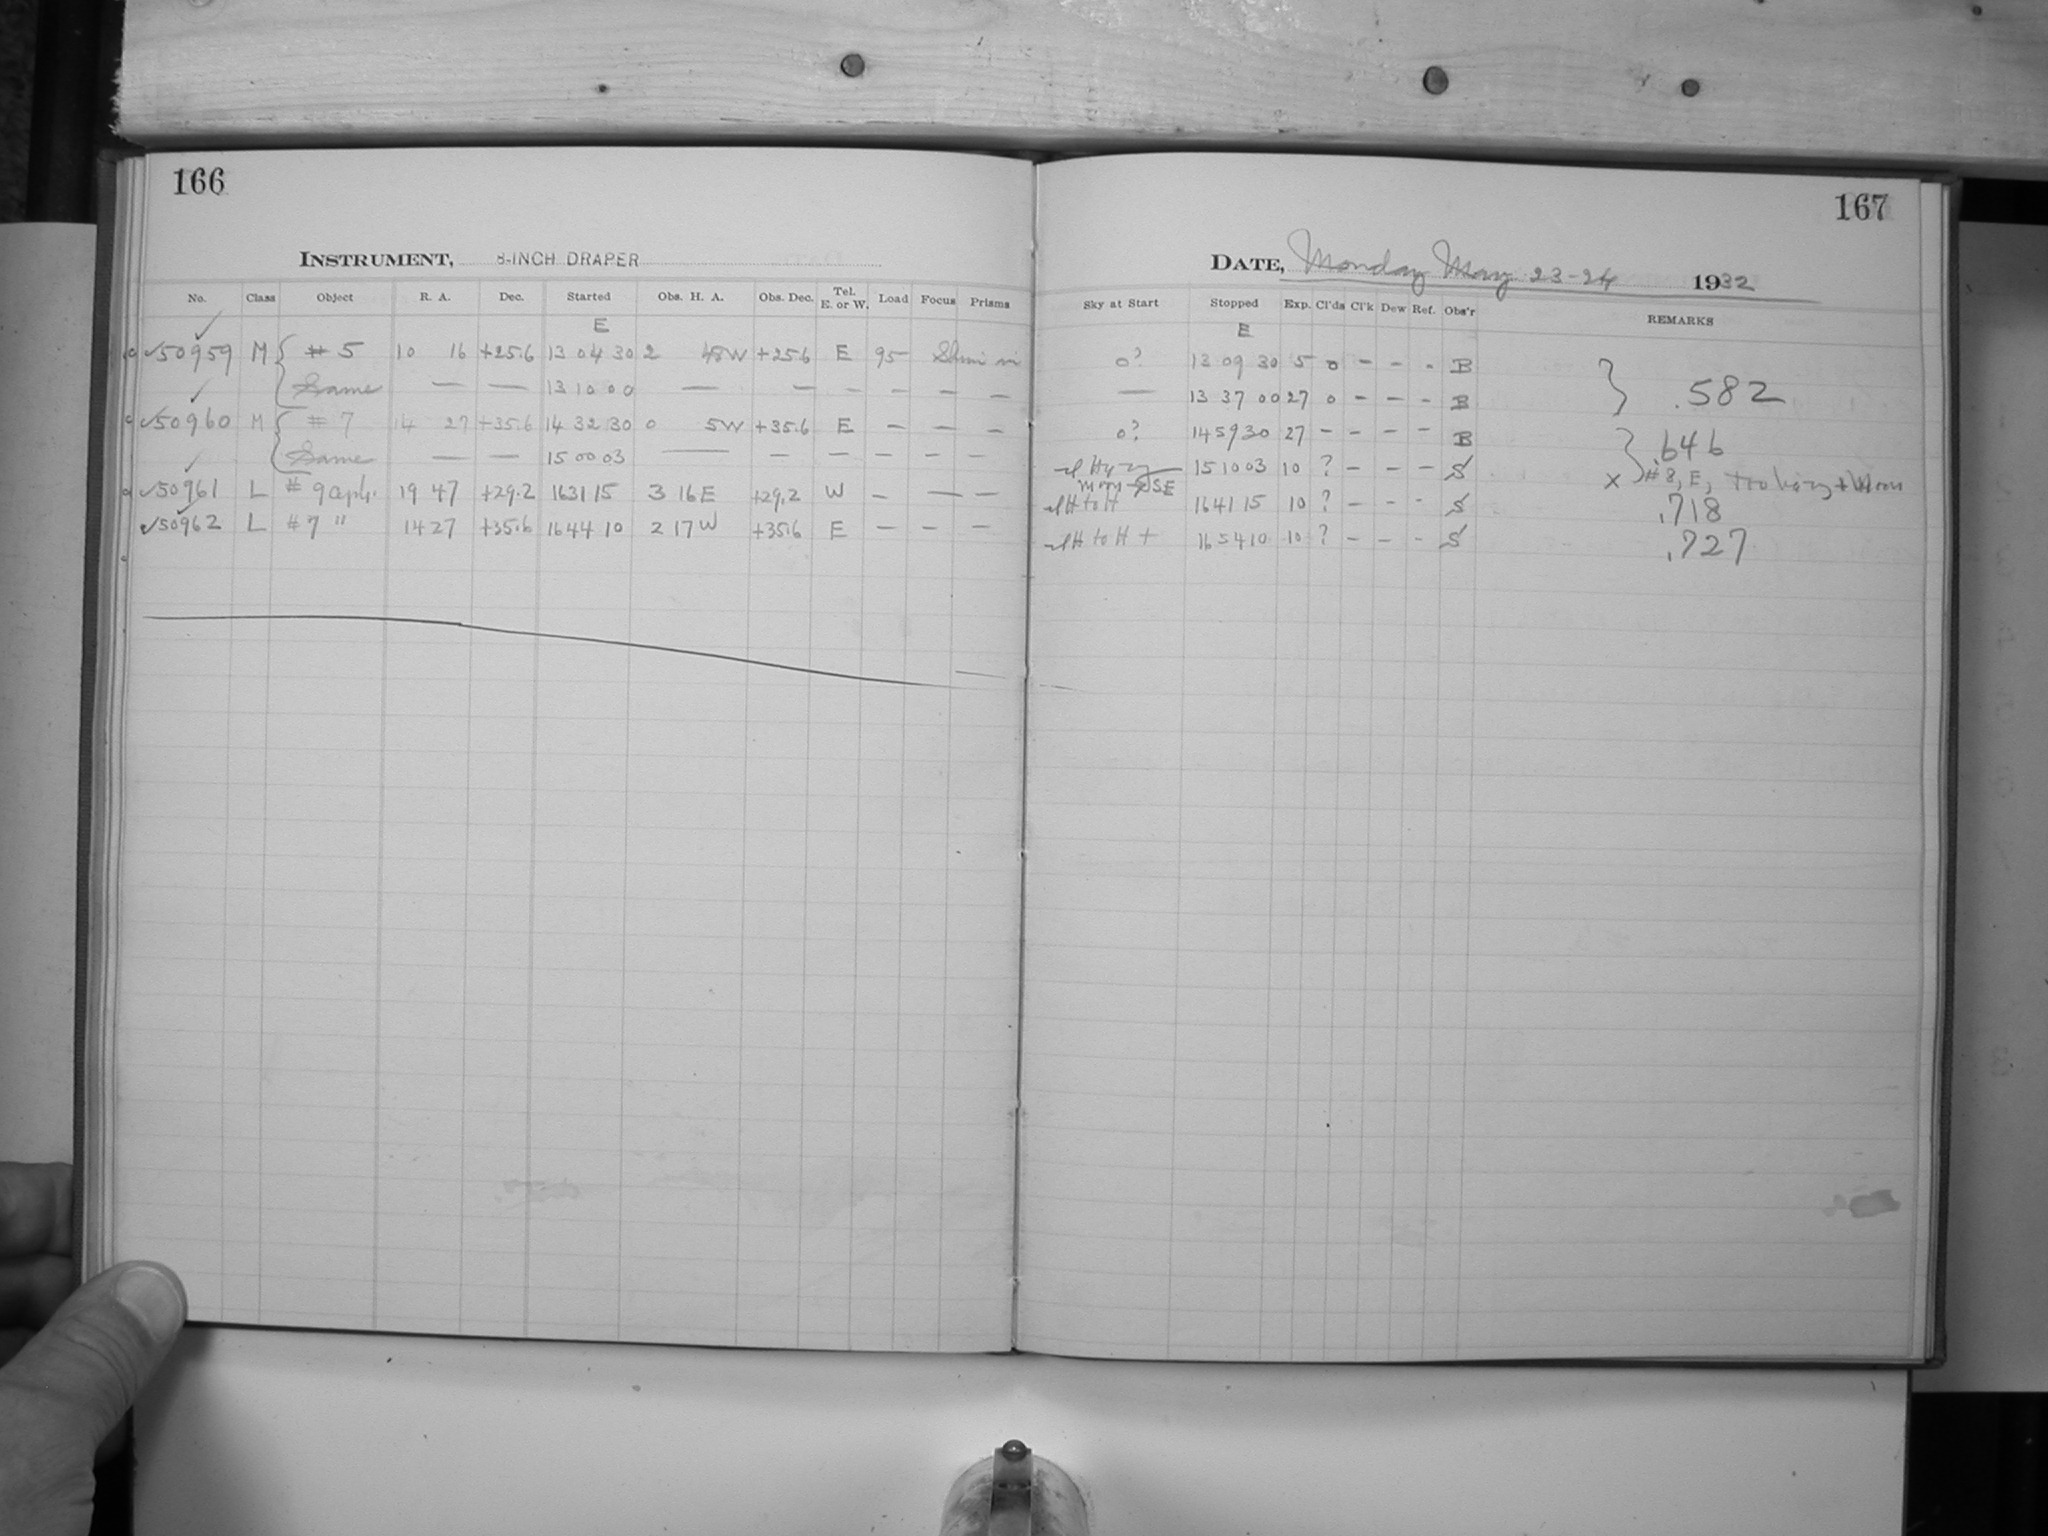 166
INSTRUMENT, 8-INCH DRAPER
No. Class Object R. A. Dec. Started Obs. H. A. Obs. Dec. Tel. E. or W. Load Focus Prisms
E
✓50959 M { # 5 10 16 +25.6 13 04 30 2 48W +25.6 E 95
Same — — 13 10 00 — — — — — —
✓50960 M { # 7 14 27 +35.6 14 32 30 0 5W +35.6 E — — —
Same — — 15 00 03 — — — — — —
✓50961 L # 9 aph. 19 47 +29.2 16 31 15 3 16E +29.2 W — — —
✓50962 L # 7 " 14 27 +35.6 16 44 10 2 17W +35.6 E — — —
167
DATE, Monday May 23-24 1932
Sky at Start Stopped Exp. Cl'ds Cl'k Dew Ref. Obs'r REMARKS
E
0? 13 09 30 5 0 - - - B
— 13 37 00 27 0 - - - B } .582
0? 14 59 30 27 - - - - B } .646
Moon SSE 15 10 03 10 ? - - - S x #8, E, + Moon
H to H 16 41 15 10 ? - - - S .718
H to H + 16 54 10 10 ? - - - S .727